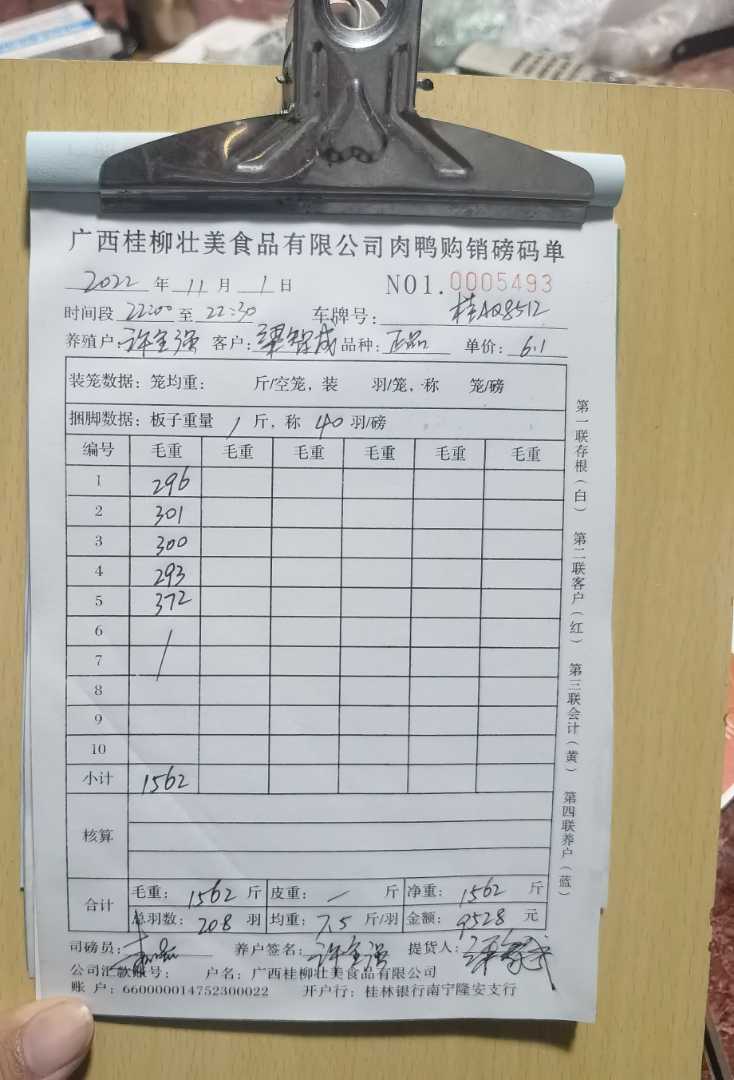 广西桂柳壮美食品有限公司肉鸭购销磅码单
2022 年 11 月 1 日 NO1.0005493
时间段 22:00 至 22:30 车牌号: 桂AQ8512
养殖户: 许全强 客户: 梁智成 品种: 正品 单价: 6.1
装笼数据: 笼均重: 斤/空笼, 装 羽/笼, 称 笼/磅
捆脚数据: 板子重量 1 斤, 称 40 羽/磅
编号 毛重 毛重 毛重 毛重 毛重 毛重
1 296
2 301
3 300
4 293
5 372
6
7
8
9
10
小计 1562
核算
合计 毛重: 1562 斤 皮重: 斤 净重: 1562 斤
总羽数: 208 羽 均重: 7.5 斤/羽 金额: 9528 元
司磅员: 养户签名: 许全强 提货人:
公司汇款账号: 户名: 广西桂柳壮美食品有限公司
账户: 660000014752300022 开户行: 桂林银行南宁隆安支行
第一联存根(白) 第二联客户(红) 第三联会计(黄) 第四联养户(蓝)